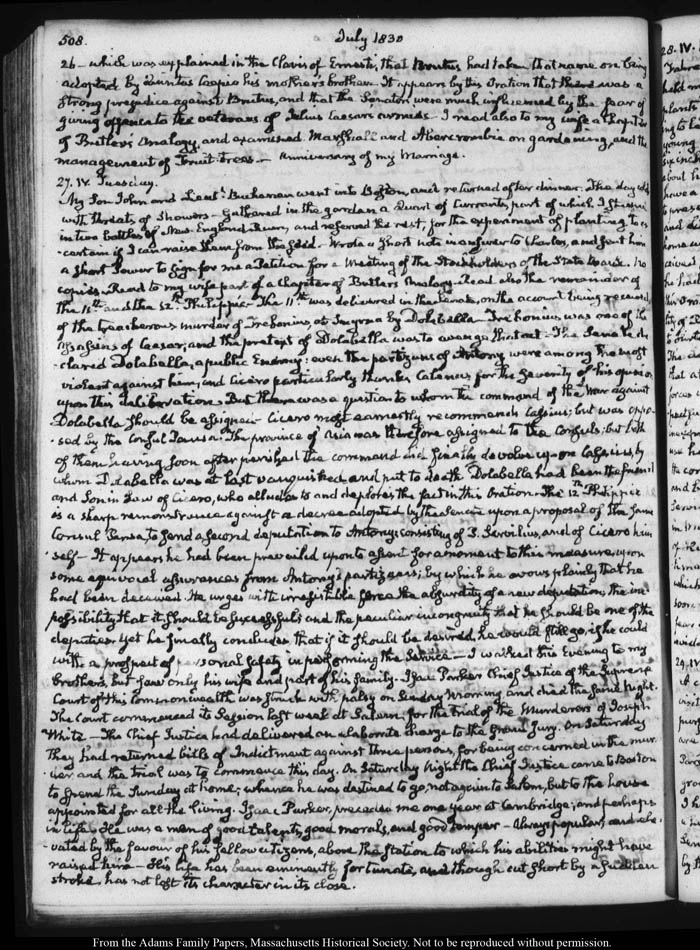 508.
July 1830
26 – which was explained in the Clavis of Ernesti, that Brutus had taken that name on being
adopted by Quintus Caepio his mother's brother. It appears by this Oration that there was a
strong prejudice against Brutus, and that the Senators were much influenced by the fear of
giving offence to the veterans of Julius Caesar's armies. I read also to my wife a Chapter
of Butler's Analogy, and examined Marshall and Abercrombie on gardening, and the
management of Fruit-trees — Anniversary of my Marriage.
27. IV. Tuesday.
My Son John and Lieut.t Buchanan went into Boston, and returned after dinner. The day
with threats of Showers – Gathered in the garden a Quart of Currants, part of which I
in two bottles of New-England Rum, and reserved the rest, for the experiment of planting, to as
certain if I can raise them from the seed – Wrote a short note in answer to Charles, and sent him
a short Power to sign for me a Petition for a Meeting of the Stockholders of the State Bank. No
copies – Read to my wife part of a Chapter of Butler's Analogy. Read also the remainder of
the 11th and the 12th Philippic – The 11th was delivered in the Senate, on the account being received,
of the treacherous murder of Trebonius, at Smyrna by Dolabella – Trebonius was one of the
Assassins of Caesar, and the pretext of Dolabella was to avenge that act – The Senate de
clared Dolabella, a public Enemy: even the partizans of Antony were among the most
violent against him; and Cicero particularly thanks Calenus, for the severity of his opinion
upon this deliberation. But there was a question to whom the command of the War against
Dolabella should be assigned – Cicero most earnestly recommends Cassius; but was oppo
sed by the Consul Pansa. The province of Asia was therefore assigned to the Consuls; but both
of them having soon after perished the command did finally devolve upon Cassius, by
whom Dolabella was at last vanquished and put to death. Dolabella had been the friend
and Son in Law of Cicero, who alludes to and deplores the fact in this Oration – The 12th Philippic
is a sharp remonstrance against a decree adopted by the Senate upon a proposal of the same
Consul Pansa, to send a second deputation to Antony, consisting of P. Servilius, and of Cicero him
self – It appears he had been prevailed upon to assent for a moment to this measure, upon
some equivocal assurances from Antony's partizans; by which he avows plainly that he
had been deceived. He urges with irresistible force the absurdity of a new deputation, the im
possibility that it should be successful; and the peculiar incongruity that he should be one of the
deputies. Yet he finally concludes that if it should be desired, he would still go, if he could
with a prospect of personal safety in performing the service — I walked this Evening to my
brother's, but saw only his wife and part of his family – Isaac Parker Chief Justice of the Supreme
Court of this Commonwealth was struck with palsy on Sunday Morning and died the same Night.
The Court commenced its Session last week at Salem, for the trial of the Murderers of Joseph
White – The Chief Justice had delivered an elaborate charge to the Grand Jury. On Saturday
They had returned bills of Indictment against three persons, for being concerned in the mur
der and the trial was to commence this day. On Saturday Night the Chief Justice came to Boston
to spend the Sunday at home; whence he was destined to go, not again to Salem, but to the house
appointed for all the living. Isaac Parker, preceded me one year at Cambridge; and perhaps
in life. He was a man of good talents, good morals, and good temper – Always popular, and ele
vated by the favour of his fellow citizens, above the Station to which his abilities might have
raised him – His life has been eminently fortunate, and though cut short by a sudden
stroke, has not lost its character in its close.
28. IV.
29. IV
From the Adams Family Papers, Massachusetts Historical Society. Not to be reproduced without permission.